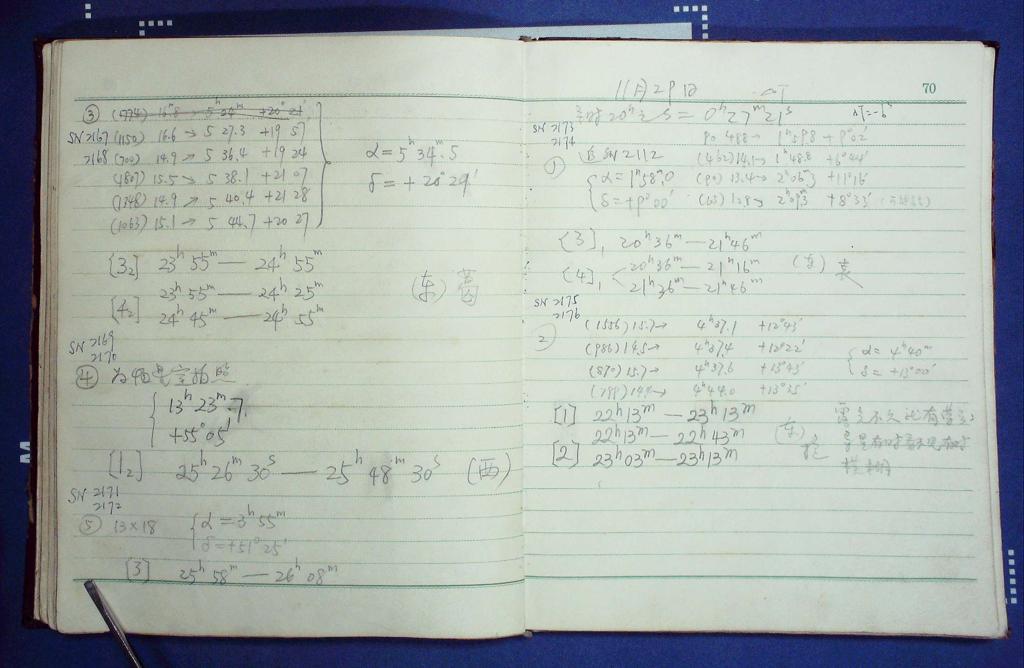 ③ (774) 16.8 → 5ʰ24ᵐ +20°21'
SN 2167 (1150) 16.6 → 5 27.3 +19 57
2168 (702) 14.9 → 5 36.4 +19 24
(4807) 15.5 → 5 38.1 +21 07
(1348) 14.9 → 5 40.4 +21 28
(1063) 15.1 → 5 44.7 +20 27
α = 5ʰ34ᵐ.5
δ = +20°29'
[3₂] 23ʰ55ᵐ — 24ʰ55ᵐ
[4₂] 23ʰ55ᵐ — 24ʰ25ᵐ
24ʰ45ᵐ — 24ʰ55ᵐ
(东)
SN 2169
2170
④ 为
拍照
13ʰ23ᵐ.7
+55°05'
[1₂] 25ʰ26ᵐ30ˢ — 25ʰ48ᵐ30ˢ (西)
SN 2171
2172
⑤ 13×18
α = 3ʰ55ᵐ
δ = +51°25'
[3] 25ʰ58ᵐ — 26ʰ08ᵐ
70
11月29日
20ʰ S = 0ʰ27ᵐ21ˢ
SN 2173
2174
① SN2112
α = 1ʰ58ᵐ.0
δ = +9°00'
(462) 14.1 → 1ʰ48.8 +6°44'
(90) 13.4 → 2ʰ06.3 +11°16
2ʰ09.3 +8°33'
[3], 20ʰ36ᵐ — 21ʰ46ᵐ
[4], 20ʰ36ᵐ — 21ʰ16ᵐ
21ʰ36ᵐ — 21ʰ46ᵐ
(东)
SN 2175
2176
② (1556) 15.7 → 4ʰ37.1 +12°43'
(986) 14.5 → 4ʰ37.4 +12°22'
(870) 15.7 → 4ʰ37.6 +13°43'
(799) 14.4 → 4ʰ44.0 +13°25'
α = 4ʰ40ᵐ
δ = +13°00'
[1] 22ʰ13ᵐ — 23ʰ13ᵐ
[2] 22ʰ13ᵐ — 22ʰ43ᵐ
23ʰ03ᵐ — 23ʰ13ᵐ
(东)
模糊